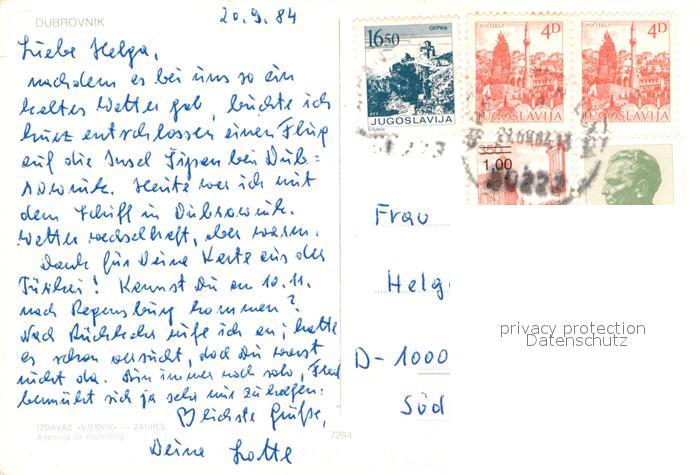 DUBROVNIK
20.9.84
Liebe Helga,
nachdem es bei uns so ein
kaltes Wetter gab, buchte ich
kurz entschlossen einen Flug
auf die Insel Šipan bei Dub=
rovnik. Heute war ich mit
dem Schiff in Dubrovnik.
Wetter wechselhaft, aber warm.
Dank für Deine Karte aus der
Türkei! Kannst Du am 10.11.
nach Regensburg kommen?
Nach Rückkehr rufe ich an; hatte
es schon versucht, doch Du warst
nicht da. Bin immer noch solo, Fred
bemüht sich ja sehr mir zu helfen.
Herzlichste Grüße,
Deine Lotte
IZDAVAČ «VJESNIK» — ZAGREB
Agencija za marketing
7294
1650
JUGOSLAVIJA
POČITELJ
4D
JUGOSLAVIJA
POČITELJ
4D
JUGOSLAVIJA
350
1,00
50220
Frau
Helg
D-1000
Süd
privacy protection
Datenschutz